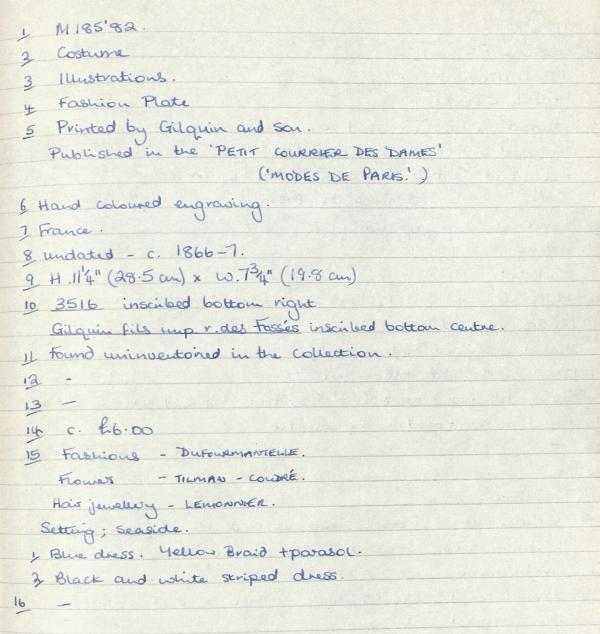 1 M185'82.
2 Costume
3 Illustrations.
4 Fashion Plate
5 Printed by Gilquin and son.
Published in the 'PETIT COURRIER DES DAMES'
('MODES DE PARIS.')
6 Hand coloured engraving.
7 France.
8 undated - c. 1866-7.
9 H.11¼" (28.5 cm) x W.7¾" (19.8 cm)
10 3516 inscribed bottom right
Gilquin fils imp r. des Fossés inscribed bottom centre.
11 Found uninventoried in the collection.
12 -
13 -
14 c. £6.00
15 Fashions - DUFOURMANTELLE.
Flowers - TILMAN - COUDRÉ.
Hair jewellery - LEMONNIER.
Setting; seaside.
1, Blue dress. Yellow Braid + parasol.
2, Black and white striped dress.
16 -